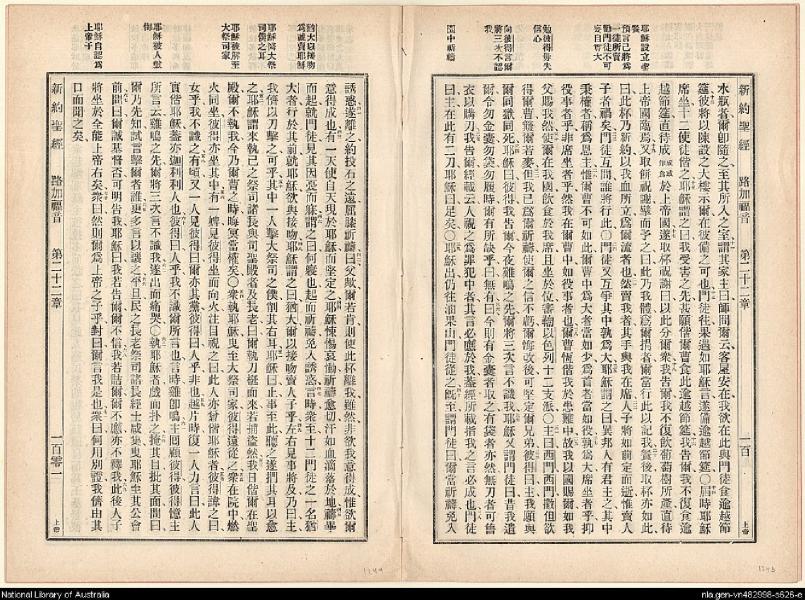 新約聖經　路加福音　第二十二章　一百　上帝
耶穌設立聖餐
預言己將爲一徒所賣
勸門徒不可妄自尊大
勉彼得毋失信心
向彼得言爾將三次不認我
園中祈禱
水瓶者爾卽隨之至其所入之室謂其家主曰師問爾云客屋安在我欲在此與門徒食逾越節
筵彼將以陳設之大樓示爾在彼備之可也門徒往果遇如耶穌言遂備逾越節筵〇屆時耶穌
席坐十二使徒偕之耶穌謂之曰我受害之先甚願偕爾曹食此逾越節筵我告爾我不復食逾
越節筵直待成於上帝國遂取杯祝謝曰以此分爾衆我告爾我不復飲葡萄樹所產直待
上帝國臨焉又取餅祝謝擘而予之曰此乃我體爲爾捐者爾當行此以記我餐後取杯亦如此
曰此杯乃新約以我血所立爲爾流者也然賣我者其手與我在席人子將如前定而逝惟賣人
子者禍矣門徒互問誰將行此〇門徒又互爭其中孰爲大耶穌謂之曰異邦人有君主之其中
秉權者稱爲恩主惟爾曹不可如此爾曹中爲大者當如少爲首者當如役孰爲大席坐者乎抑
役事者乎非席坐者乎然我在爾曹中如役事者也爾曹恆偕我於患難中故我以國賜爾如我
父賜我然使爾在我國飲食於我席且坐於位審鞫以色列十二支派〇主曰西門西門撒但欲
得爾曹簸爾若麥但我已爲爾祈禱使爾之信不虧爾悔改後可堅定爾兄弟彼得曰主我願與
爾同獄同死耶穌曰彼得我告爾今夜雞鳴之先爾將三次言不識我耶穌又謂門徒曰昔我遣
爾令勿金囊勿袋勿履時爾有所缺乎曰無有曰今則有金囊者取之有袋者亦然無刀者可售
衣以購刀我告爾經載云人視之爲罪犯中者其言必應於我蓋經所載指我之言必成也門徒
曰主在此有二刀耶穌曰足矣〇耶穌出仍往油果山門徒從之既至謂門徒曰爾當祈禱免入
猶大以接吻爲誠賣耶穌
耶穌醫大祭司僕之耳
耶穌被解至大祭司家
耶穌被人戲侮
耶穌自認爲上帝子
誘惑遂離之約投石之遠屈膝祈禱曰父歟爾若肯則使此杯離我雖然非欲我意得成惟欲爾
意得成也有一天使自天現於耶穌而堅定之耶穌悽傷哀慟祈禱愈切汗如血滴落於地禱畢
而起就門徒見其因憂而寐謂之曰何寢也起而祈禱免入誘惑言時衆至十二門徒之一名猶
大者行於其前就耶穌欲與接吻耶穌謂之曰猶大爾以接吻賣人子乎左右見事將及乃曰主
我儕以刀擊之可乎其中一人擊大祭司之僕削其右耳耶穌曰止事至此聽之遂捫其耳以愈
之耶穌謂來執己之祭司諸長與司聖殿者及長老曰爾執刀梃而來若捕盜然我日偕爾在聖
殿爾不執我今乃爾曹之時晦冥當權矣〇衆執耶穌曳至大祭司家彼得遠從之衆在院中燃
火同坐彼得亦坐其中有一婢見彼得坐而向火注目視之曰此人亦素偕耶穌者彼得諱之曰
女乎我不識之有頃又一人見彼得曰爾亦其黨彼得曰人乎非也越片時復一人力言曰此人
實偕耶穌蓋亦迦利利人也彼得曰人乎我不識爾所言也言時雞卽鳴主回顧彼得彼得憶主
所言云雞鳴之先爾將三次言不識我遂出而痛哭〇執耶穌者戲而扑之掩其目批其面問曰
爾乃先知試言擊爾者誰更多言以譏之平旦民之長老祭司諸長經士咸集曳耶穌至其公會
前問曰爾誠基督否可明告我耶穌曰我若告爾爾不信我若詰爾爾不應亦不釋我此後人子
將坐於全能上帝右矣衆曰然則爾爲上帝之子乎對曰爾言我是也衆曰何用別證我儕由其
口面聞之矣
新約聖經　路加福音　第二十二章　一百零一　上帝
National Library of Australia
nla.gen-vn482998-s626-e